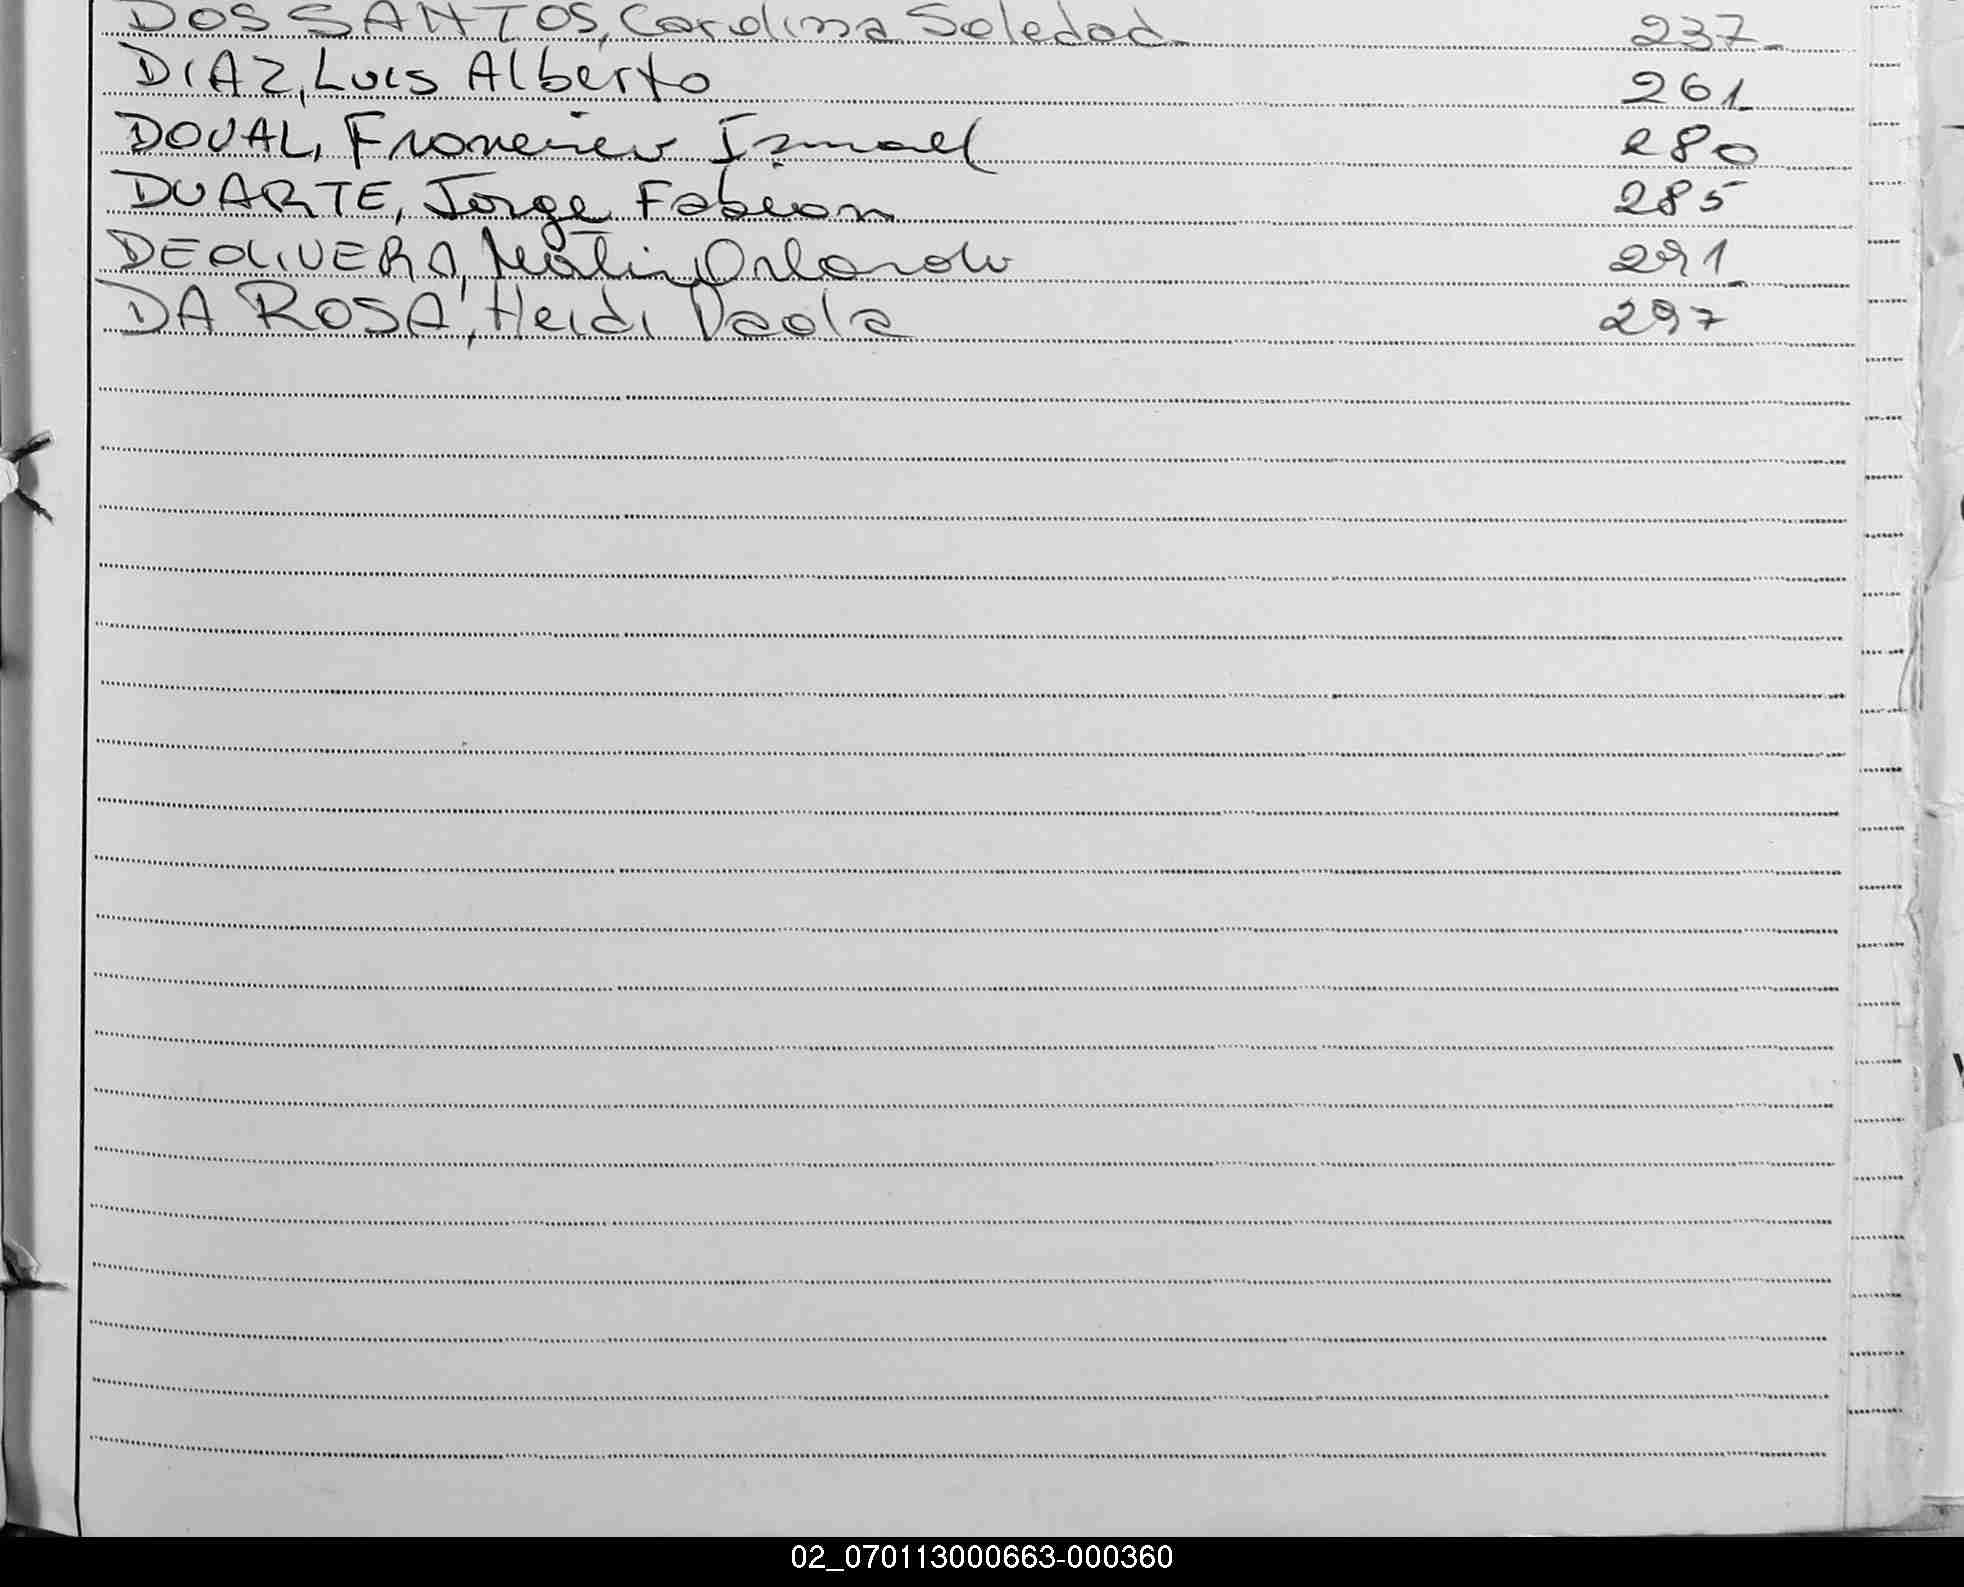 DOS SANTOS, Carolina Soledad 237
DIAZ, Luis Alberto 261
DOVAL, Francisco Ismael 280
DUARTE, Jorge Fabian 285
DEOLIVERA, Martin Orlando 291
DA ROSA, Heidi Paola 297
02_070113000663-000360